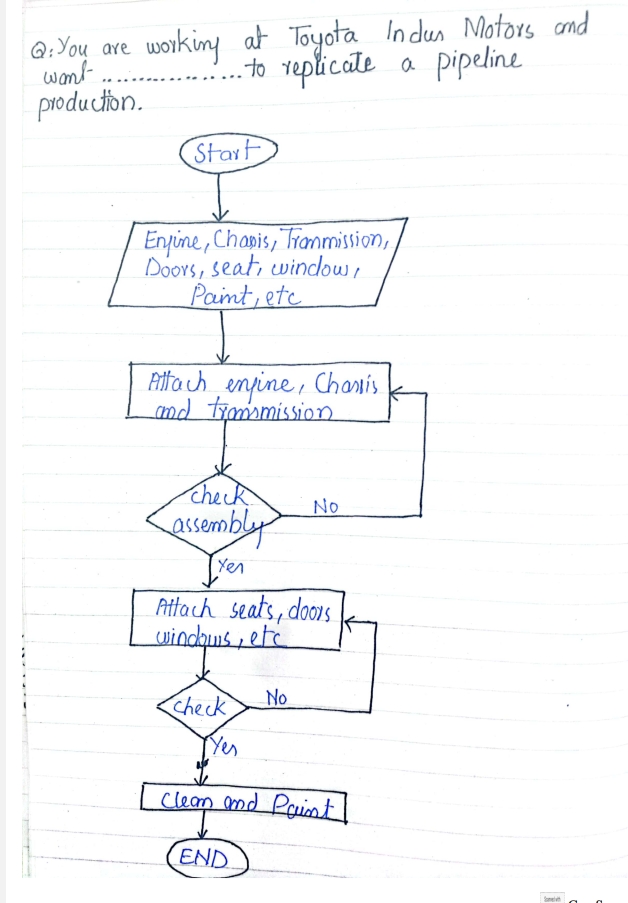 Q: You are working at Toyota Indus Motors and
want .................. to replicate a pipeline
production.
Start
Engine, Chasis, Transmission,
Doors, seat, window,
Paint, etc
Attach engine, Chassis
and transmission
check
assembly
No
Yes
Attach seats, doors
windows, etc
check
No
Yes
Clean and Paint
END
Scanned with